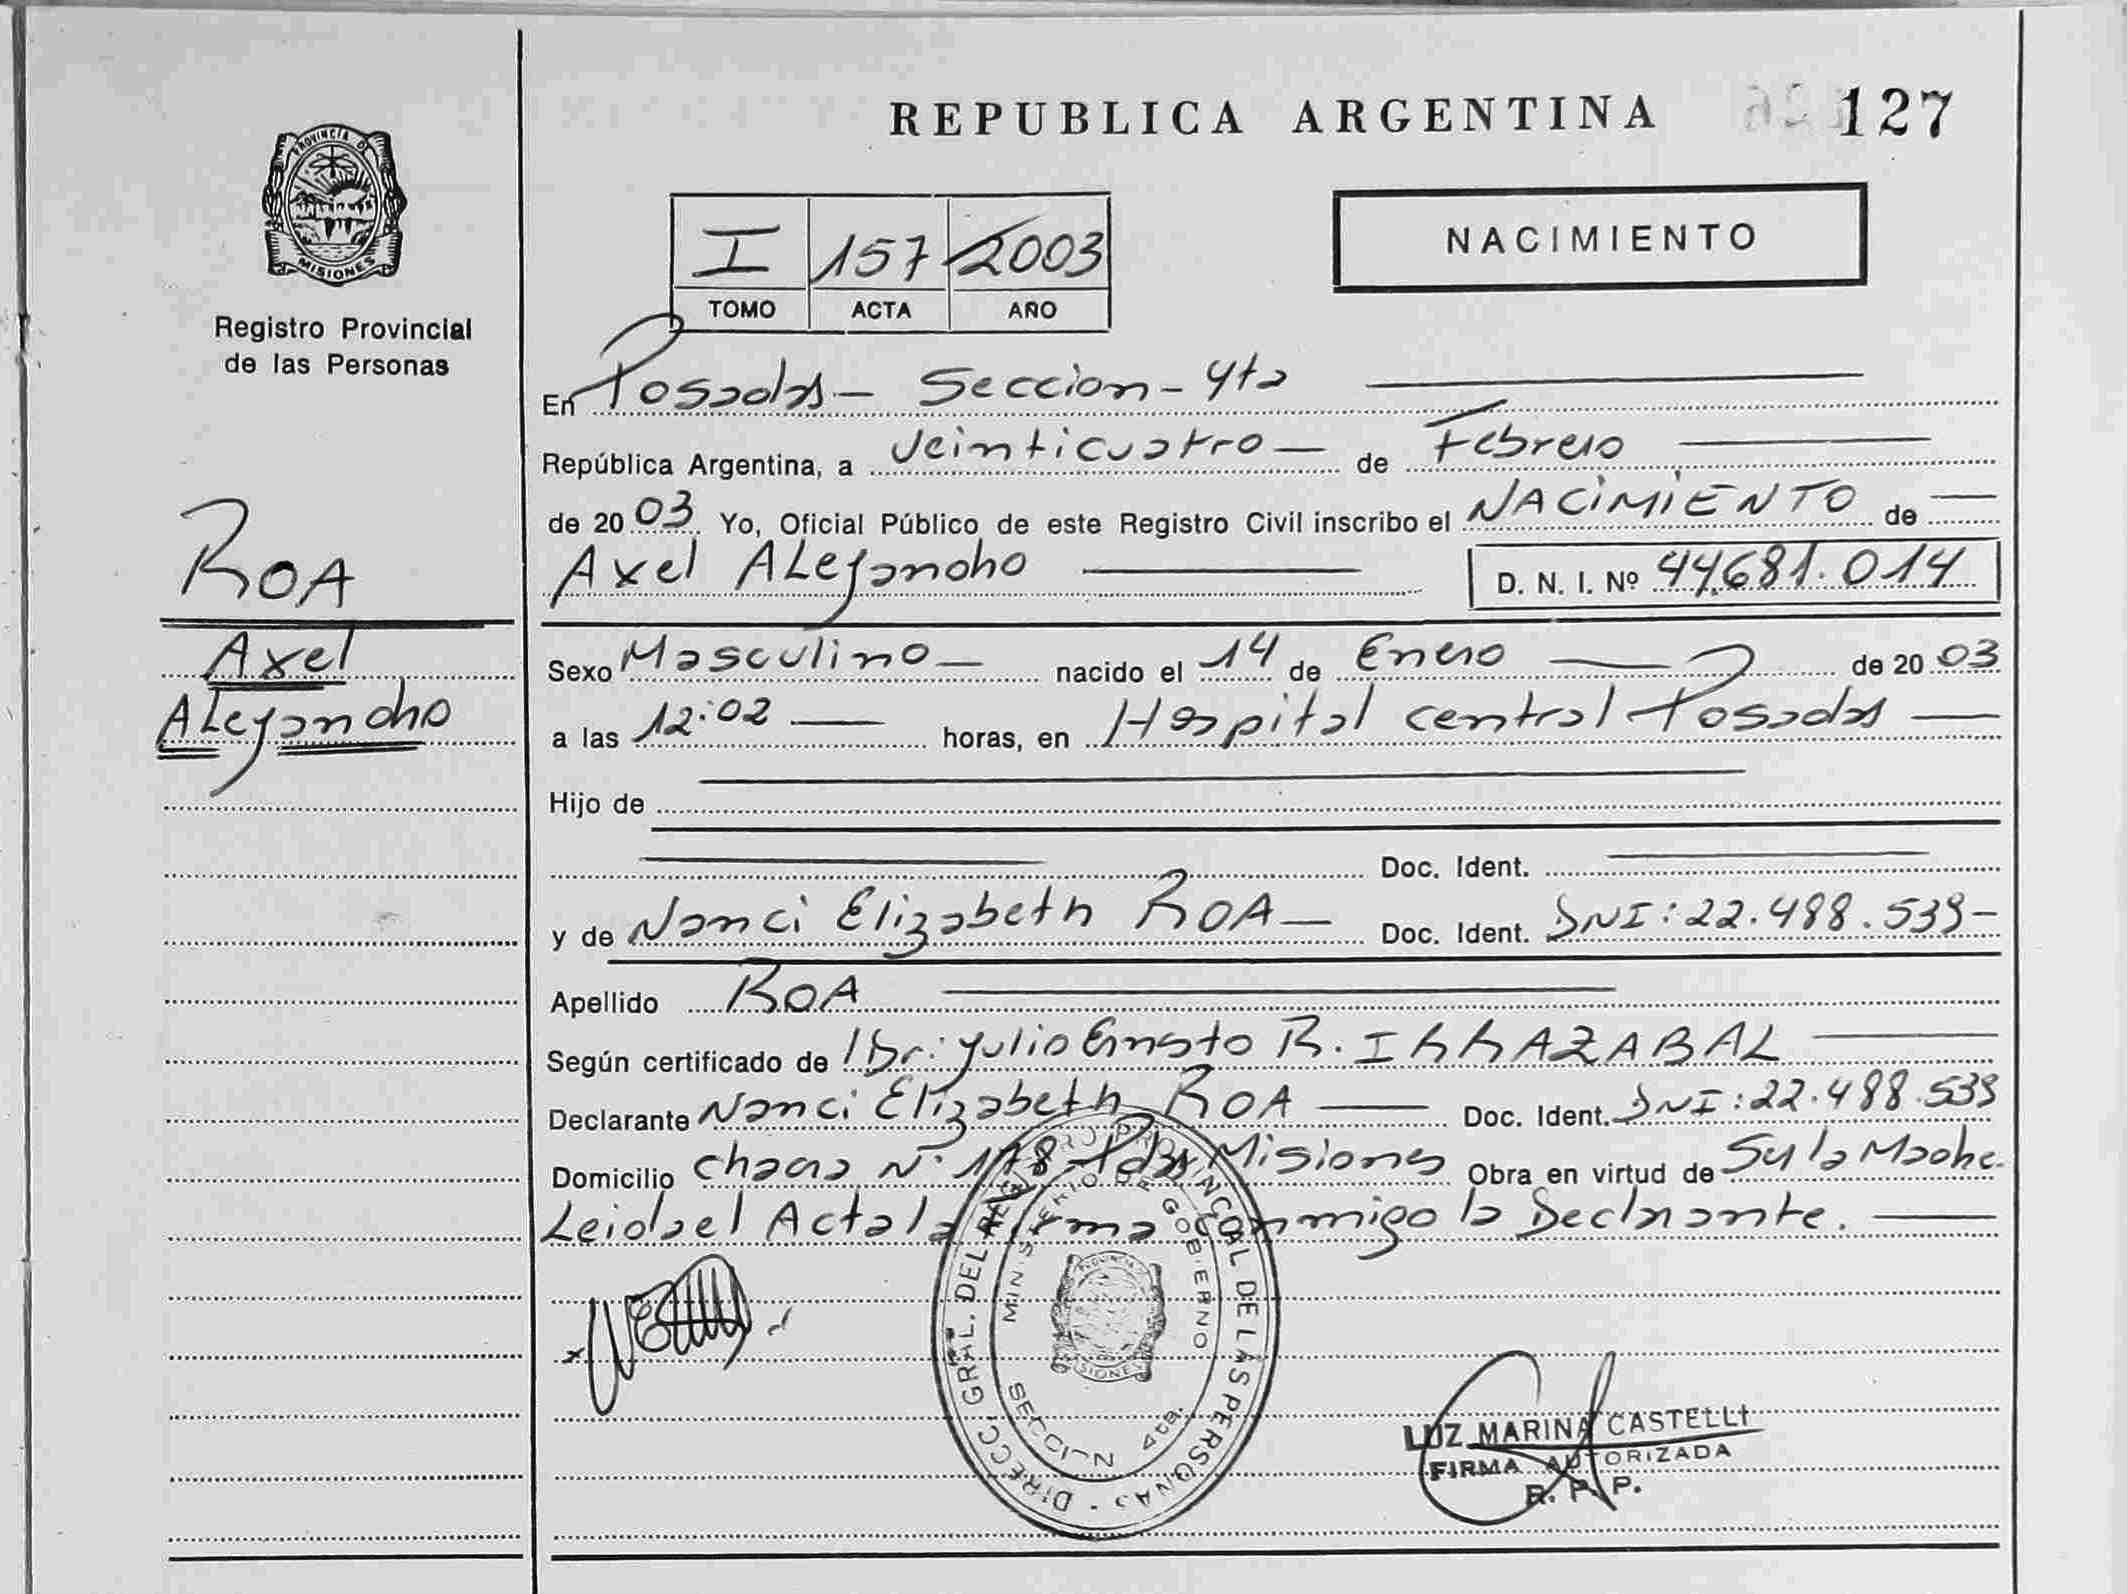 REPUBLICA ARGENTINA 127
PROVINCIA DE
MISIONES
Registro Provincial
de las Personas
I 157 2003
TOMO ACTA AÑO
NACIMIENTO
En Posadas - Seccion - 4ta
República Argentina, a Veinticuatro de Febrero
de 2003 Yo, Oficial Público de este Registro Civil inscribo el NACIMIENTO de
Axel ALejandro D. N. I. Nº 44.681.014
ROA
Axel
ALejandro
Sexo Masculino nacido el 14 de Enero de 2003
a las 12:02 horas, en Hospital central Posadas
Hijo de
Doc. Ident.
y de Nanci Elizabeth ROA Doc. Ident. DNI: 22.488.539
Apellido ROA
Según certificado de Dr: Julio Ernesto R. IRRAZABAL
Declarante Nanci Elizabeth ROA Doc. Ident. DNI: 22.488.539
Domicilio chacra Nº 178 - Pdas Misiones Obra en virtud de Ser la Madre.
Leida el Acta la firma conmigo la Declarante.
DIRECC. GRAL. DEL REGISTRO PROVINCIAL DE LAS PERSONAS
MINISTERIO DE GOBIERNO
SECCION 4ta.
LUZ MARINA CASTELLI
FIRMA AUTORIZADA
R. P. P.